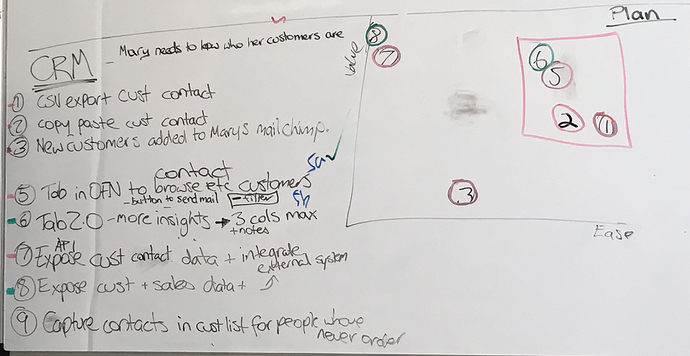 Plan
Mary needs to know who her customers are
CRM
① CSV export cust contact
② copy paste cust contact
③ New customers added to Mary's mailchimp.
contact
⑤ Tab in OFN to browse etc customers
- button to send mail - filter
⑥ Tab 2.0 - more insights → 3 cols max
+ notes
API
⑦ Expose cust contact data + integrate
external system
⑧ Expose cust + sales data +
⑨ Capture contacts in cust list for people whove
never order
Value
8
7
6
5
2
1
3
Ease